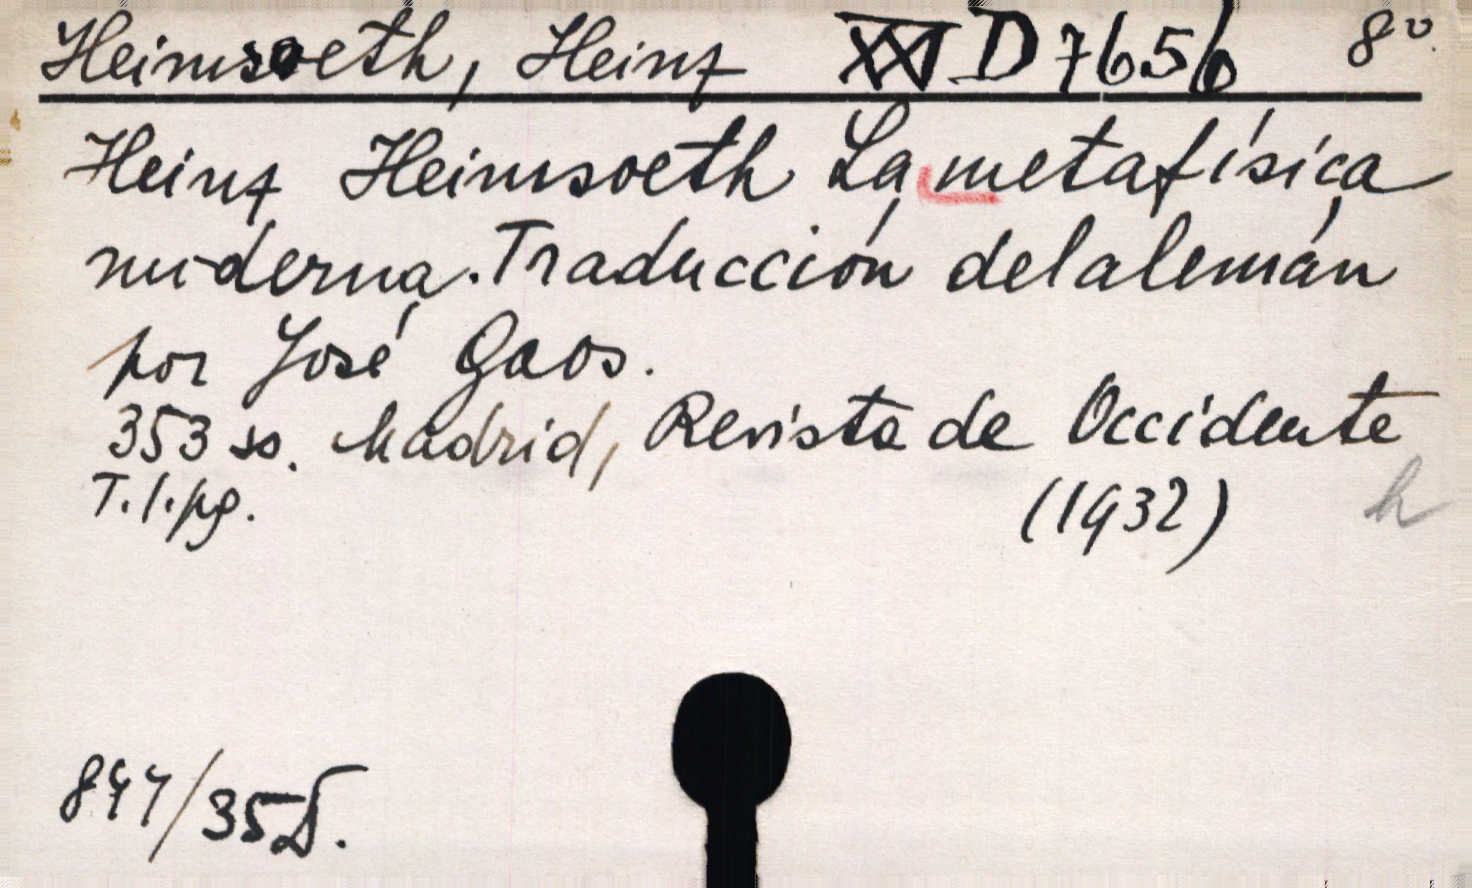 Heimsoeth, Heinz XXI D 7656 8º.
Heinz Heimsoeth La metafísica
moderna. Traducción del alemán
por José Gaos.
353 ss. Madrid, Revista de Occidente
T. l. pg. (1932) h
847/35